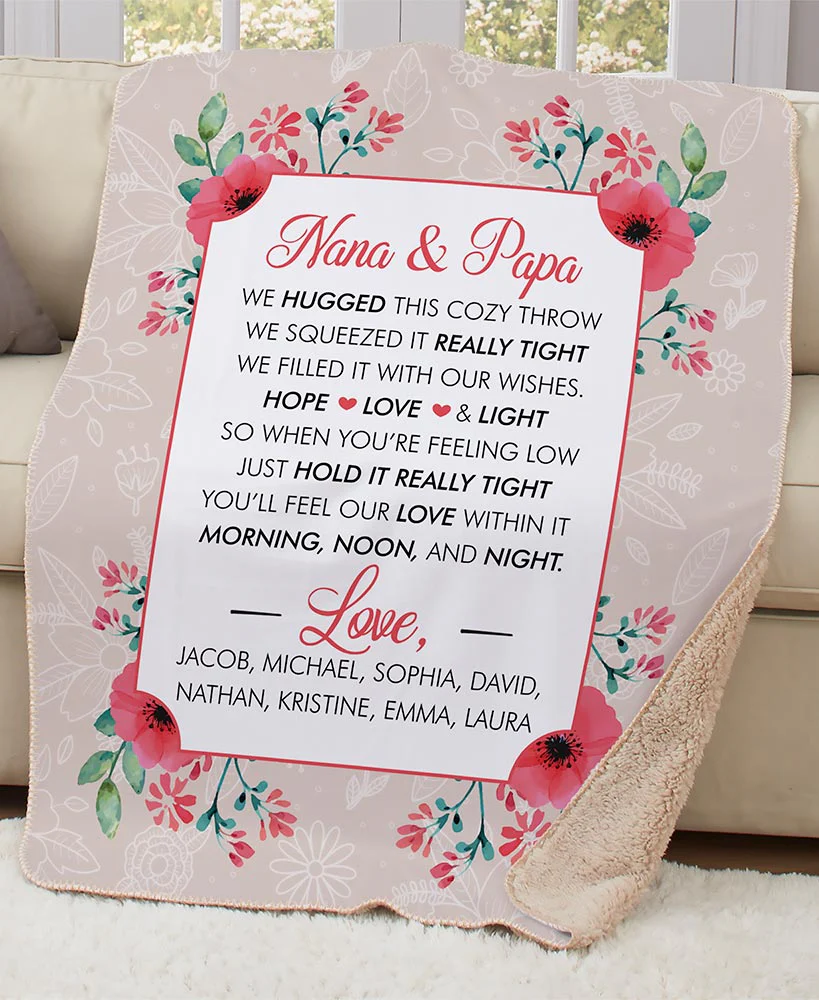 Nana & Papa
WE HUGGED THIS COZY THROW
WE SQUEEZED IT REALLY TIGHT
WE FILLED IT WITH OUR WISHES.
HOPE ♥ LOVE ♥ & LIGHT
SO WHEN YOU'RE FEELING LOW
JUST HOLD IT REALLY TIGHT
YOU'LL FEEL OUR LOVE WITHIN IT
MORNING, NOON, AND NIGHT.
Love,
JACOB, MICHAEL, SOPHIA, DAVID,
NATHAN, KRISTINE, EMMA, LAURA